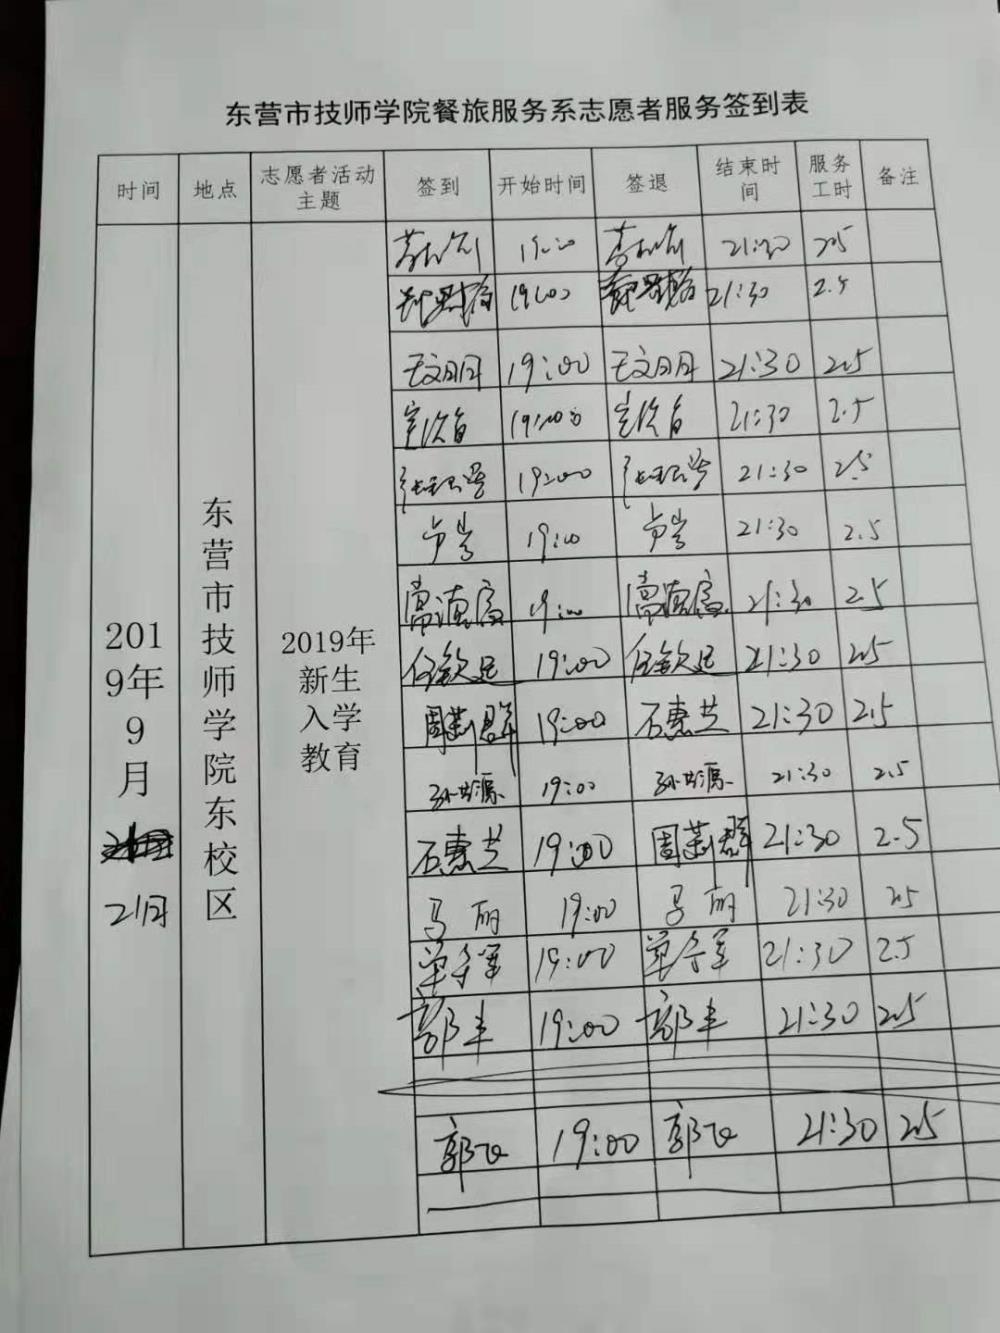 东营市技师学院餐旅服务系志愿者服务签到表
时间 地点 志愿者活动主题 签到 开始时间 签退 结束时间 服务工时 备注
2019年9月
21日
东营市技师学院东校区
2019年新生入学教育
19:00 21:30 2.5
19:00 21:30 2.5
王文明 19:00 王文明 21:30 2.5
19:00 21:30 2.5
19:00 21:30 2.5
19:00 21:30 2.5
常德富 19:00 常德富 21:30 2.5
19:00 21:30 2.5
周莉群 19:00 石惠芝 21:30 2.5
孙洪源 19:00 孙洪源 21:30 2.5
石惠芝 19:00 周莉群 21:30 2.5
马丽 19:00 马丽 21:30 2.5
单令军 19:00 单令军 21:30 2.5
郭丰 19:00 郭丰 21:30 2.5
郭飞 19:00 郭飞 21:30 2.5